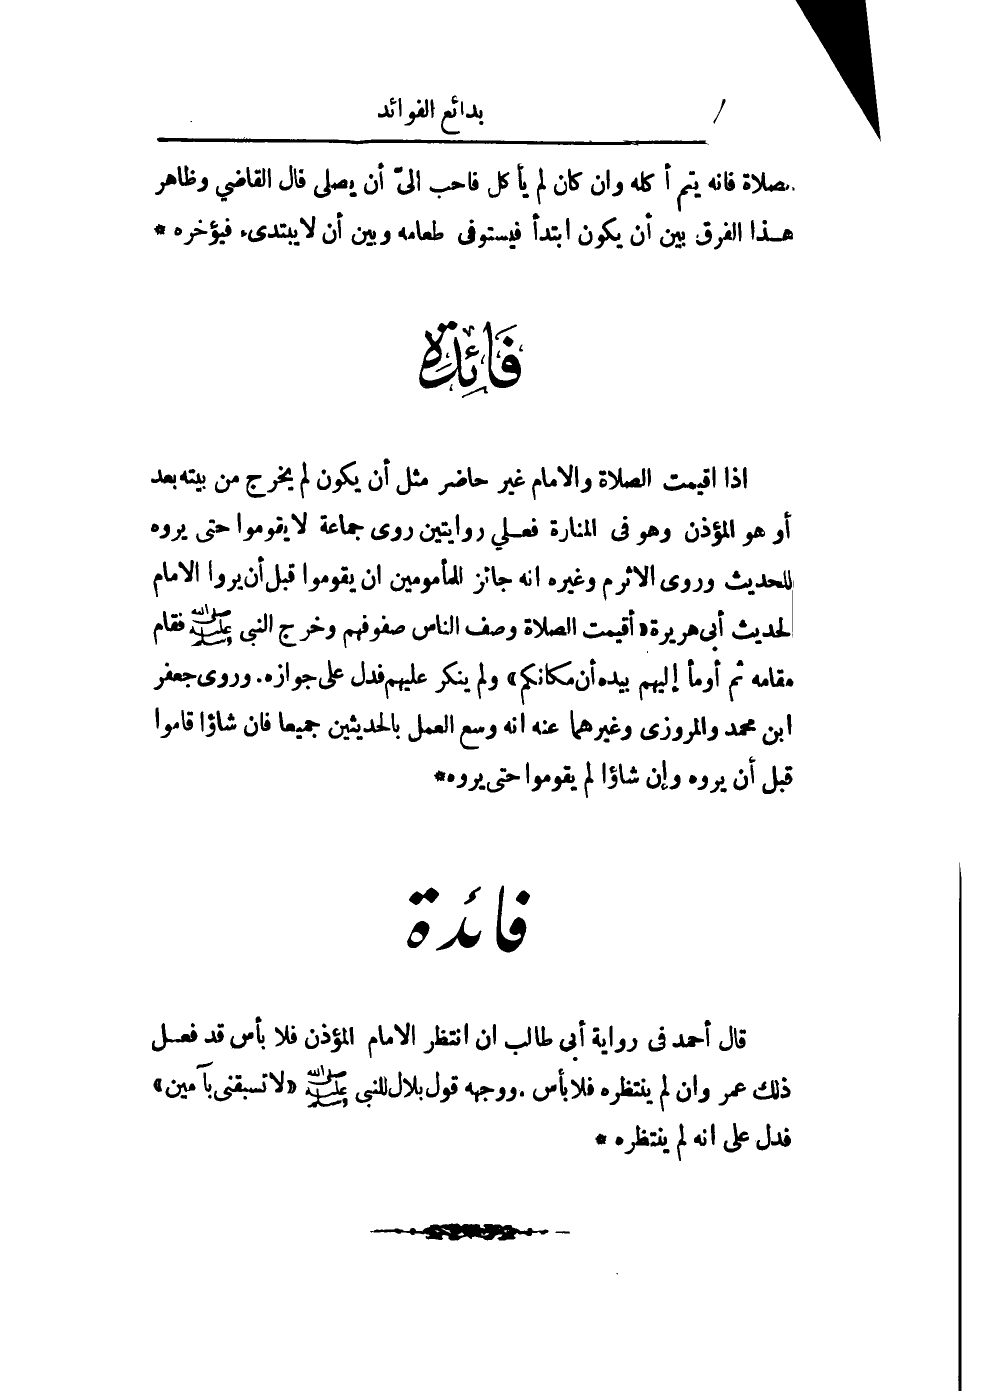 بدائع الفوائد
الصلاة فانه يتم أ كله وان كان لم يأ كل فاحب الىّ أن يصلى قال القاضي وظاهر
هـذا الفرق بين أن يكون ابتدأ فيستوفى طعامه وبين أن لا يبتدىء فيؤخره *
فَائِدَة
اذا اقيمت الصلاة والامام غير حاضر مثل أن يكون لم يخرج من بيته بعد
أو هو المؤذن وهو فى المنارة فعـلي روايتين روى جماعة لا يقوموا حتى يروه
للحديث وروى الاثرم وغيره انه جائز للمأمومين ان يقوموا قبل أن يروا الامام
لحديث أبى هريرة «أقيمت الصلاة وصف الناس صفوفهم وخرج النبى ﷺ فقام
مقامه ثم أومأ إليهم بيده أن مكانكم» ولم ينكر عليهم فدل على جوازه. وروى جعفر
ابن محمد والمروزى وغيرهما عنه انه وسع العمل بالحديثين جميعا فان شاؤا قاموا
قبل أن يروه وإن شاؤا لم يقوموا حتى يروه*
فائدة
قال أحمد فى رواية أبى طالب ان انتظر الامام المؤذن فلا بأس قد فعـل
ذلك عمر وان لم ينتظره فلا بأس . ووجهه قول بلال للنبى ﷺ «لا تسبقنى بآ مين»
فدل على انه لم ينتظره *